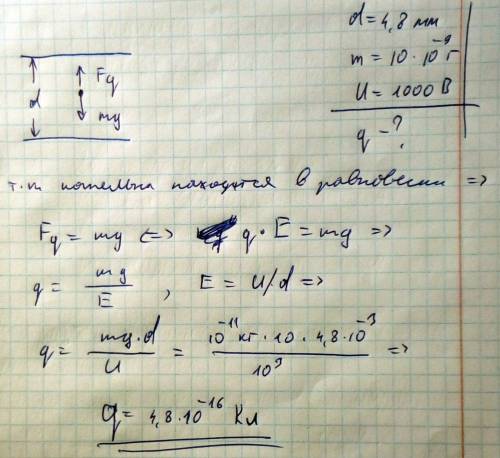 d = 4,8 мм
m = 10 · 10⁻⁹ г
U = 1000 В
q - ?
d
Fq
mg
т.к капелька находится в равновесии =>
Fq = mg <=> q · E = mg =>
q = mg / E , E = U/d =>
q = mg · d / U = 10⁻¹¹ кг · 10 · 4,8 · 10⁻³ / 10³ =>
q = 4,8 · 10⁻¹⁶ Кл